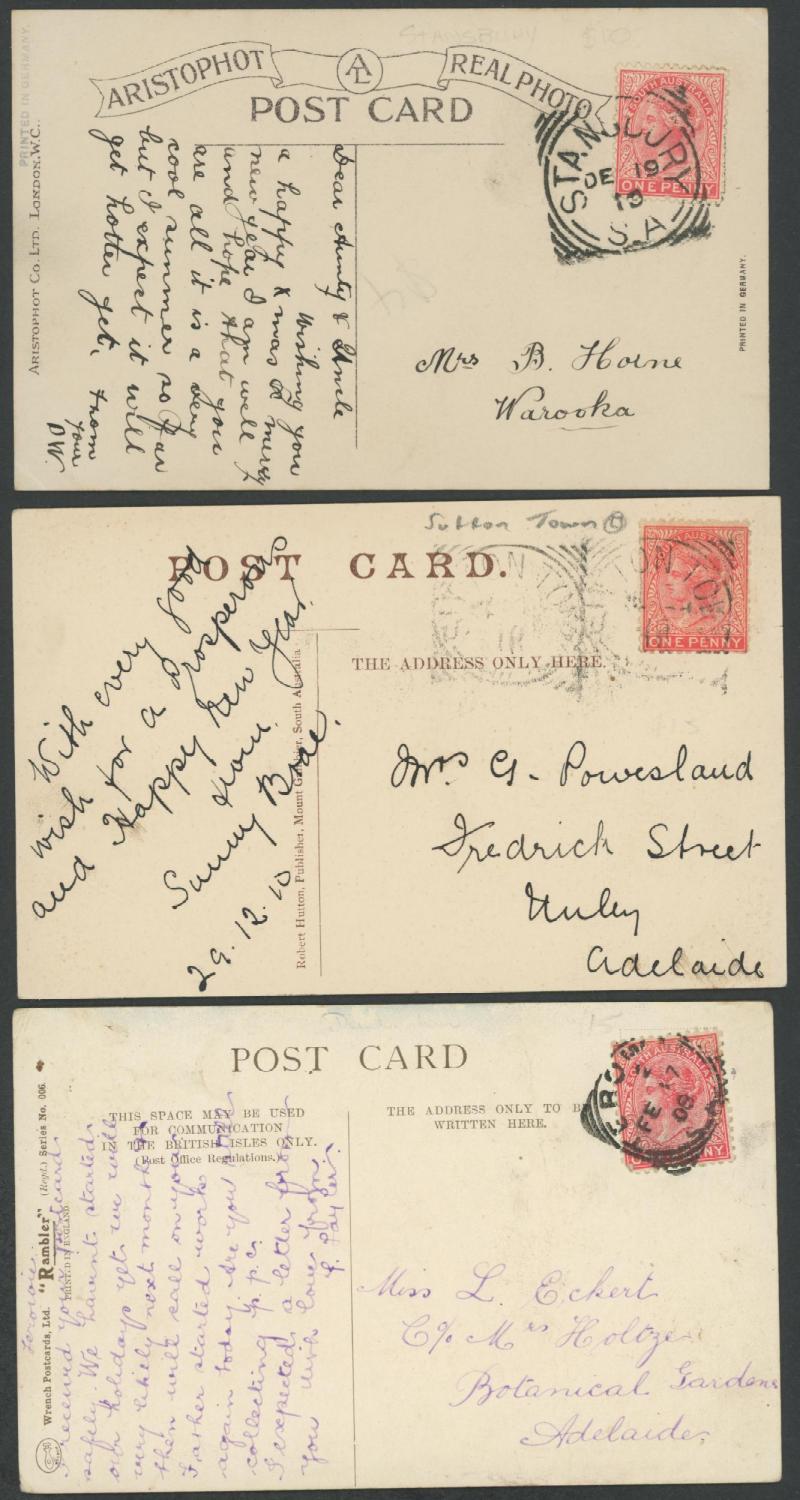 STANSBURY $10
ARISTOPHOT AL REAL PHOTO
POST CARD
PRINTED IN GERMANY.
ARISTOPHOT CO. LTD. LONDON. W.C.
Dear Aunty & Uncle
Wishing you
a happy Xmas & merry
new year I am well
and hope that you
are all it is a very
cool summer so far
but I expect it will
get hotter yet, from
your
DW.
SOUTH AUSTRALIA
ONE PENNY
STANSBURY
DE 19
10
S.A
PRINTED IN GERMANY.
Mrs B. Horne
Warooka
Sutton Town
POST CARD.
AUSTRALIA
ONE PENNY
THE ADDRESS ONLY HERE.
With every good
wish
and for a Prosperous
Happy New Year
from
Sunny Brae.
29.12.10
Robert Hutton, Publisher, Mount Gambier, South Australia.
Mrs G. Powesland
Fredrick Street
Unley
Adelaide
15
POST CARD
THIS SPACE MAY BE USED
FOR COMMUNICATION
IN THE BRITISH ISLES ONLY.
(Post Office Regulations.)
THE ADDRESS ONLY TO BE
WRITTEN HERE.
SOUTH AUSTRALIA
ONE PENNY
FE 17
08
Wrench Postcards, Ltd. "Rambler" (Regd.) Series No. 006.
PRINTED IN ENGLAND
Terowie
I received your postcard
safely. We havent started
our holidays yet we will
very likely next month &
then will call on you
Father started work
again today. Are you still
collecting p.p.c.
I expected a letter from
you with love from
G. Payler.
Miss L. Eckert
C/o Mrs Holtze
Botanical Gardens
Adelaide.